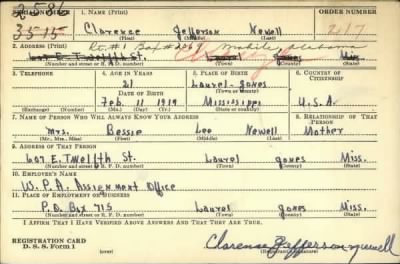 2586
3515
1. NAME (Print)
ORDER NUMBER
Clarence Jefferson Newell
217
(First) (Middle) (Last)
2. ADDRESS (Print)
Rt. #1 Box Mobile Alabama
607 E. Twelfth St. Laurel Jones Miss.
(Number and street or R. F. D. number) (Town) (County) (State)
3. TELEPHONE
4. AGE IN YEARS
5. PLACE OF BIRTH
6. COUNTRY OF CITIZENSHIP
21
Laurel - Jones
DATE OF BIRTH
(Town or county)
Feb. 11 1919
Mississippi
U.S.A.
(Exchange) (Number)
(Mo.) (Day) (Yr.)
(State or country)
7. NAME OF PERSON WHO WILL ALWAYS KNOW YOUR ADDRESS
8. RELATIONSHIP OF THAT PERSON
Mrs. Bessie Lee Newell Mother
(Mr., Mrs., Miss) (First) (Middle) (Last)
9. ADDRESS OF THAT PERSON
607 E. Twelfth St. Laurel Jones Miss.
(Number and street or R. F. D. number) (Town) (County) (State)
10. EMPLOYER'S NAME
W.P.A. Assignment Office
11. PLACE OF EMPLOYMENT OR BUSINESS
P.O. Box 715 Laurel Jones Miss.
(Number and street or R. F. D. number) (Town) (County) (State)
I AFFIRM THAT I HAVE VERIFIED ABOVE ANSWERS AND THAT THEY ARE TRUE.
REGISTRATION CARD
D. S. S. Form 1
(over)
Clarence Jefferson Newell
(Registrant's signature)